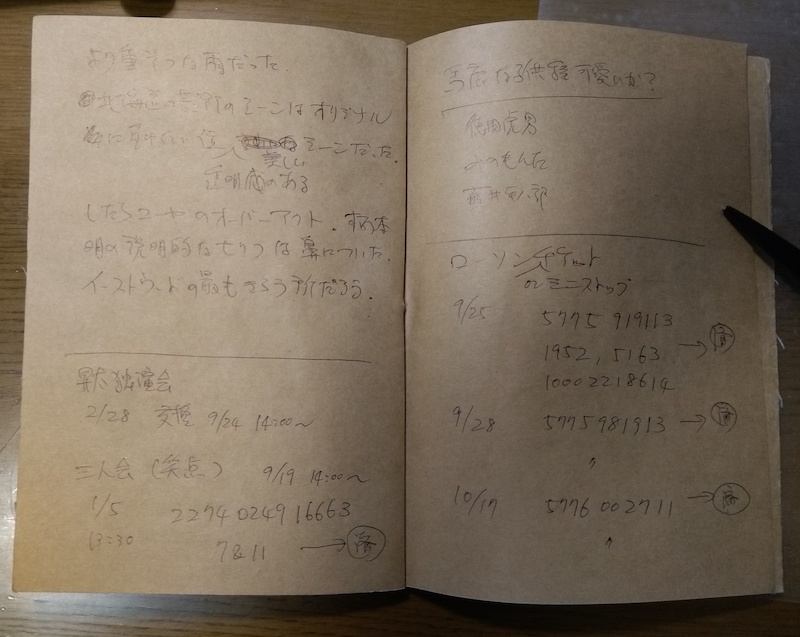 より重そうな雨だった
北海道の荒野のシーンはオリジナル
にはない位
シーンだった。
美しい
透明感のある
したらコーヤのオーバーアクト、柄本
明の説明的なセリフは鼻についた。
イーストウッドの最もきらう所だろう。
昇太独演会
2/28 交換 9/24 14:00〜
三人会(笑点) 9/19 14:00〜
1/5 2274024916663
13:30 7&11 → 済
馬鹿な子供程可愛いか?
徳田虎男
みのもんた
ローソンチケット
or ミニストップ
9/25 5775 919113
1952, 5163 → 済
10002218614
9/28 5775981913 → 済
〃
10/17 5776 002711 → 済
〃